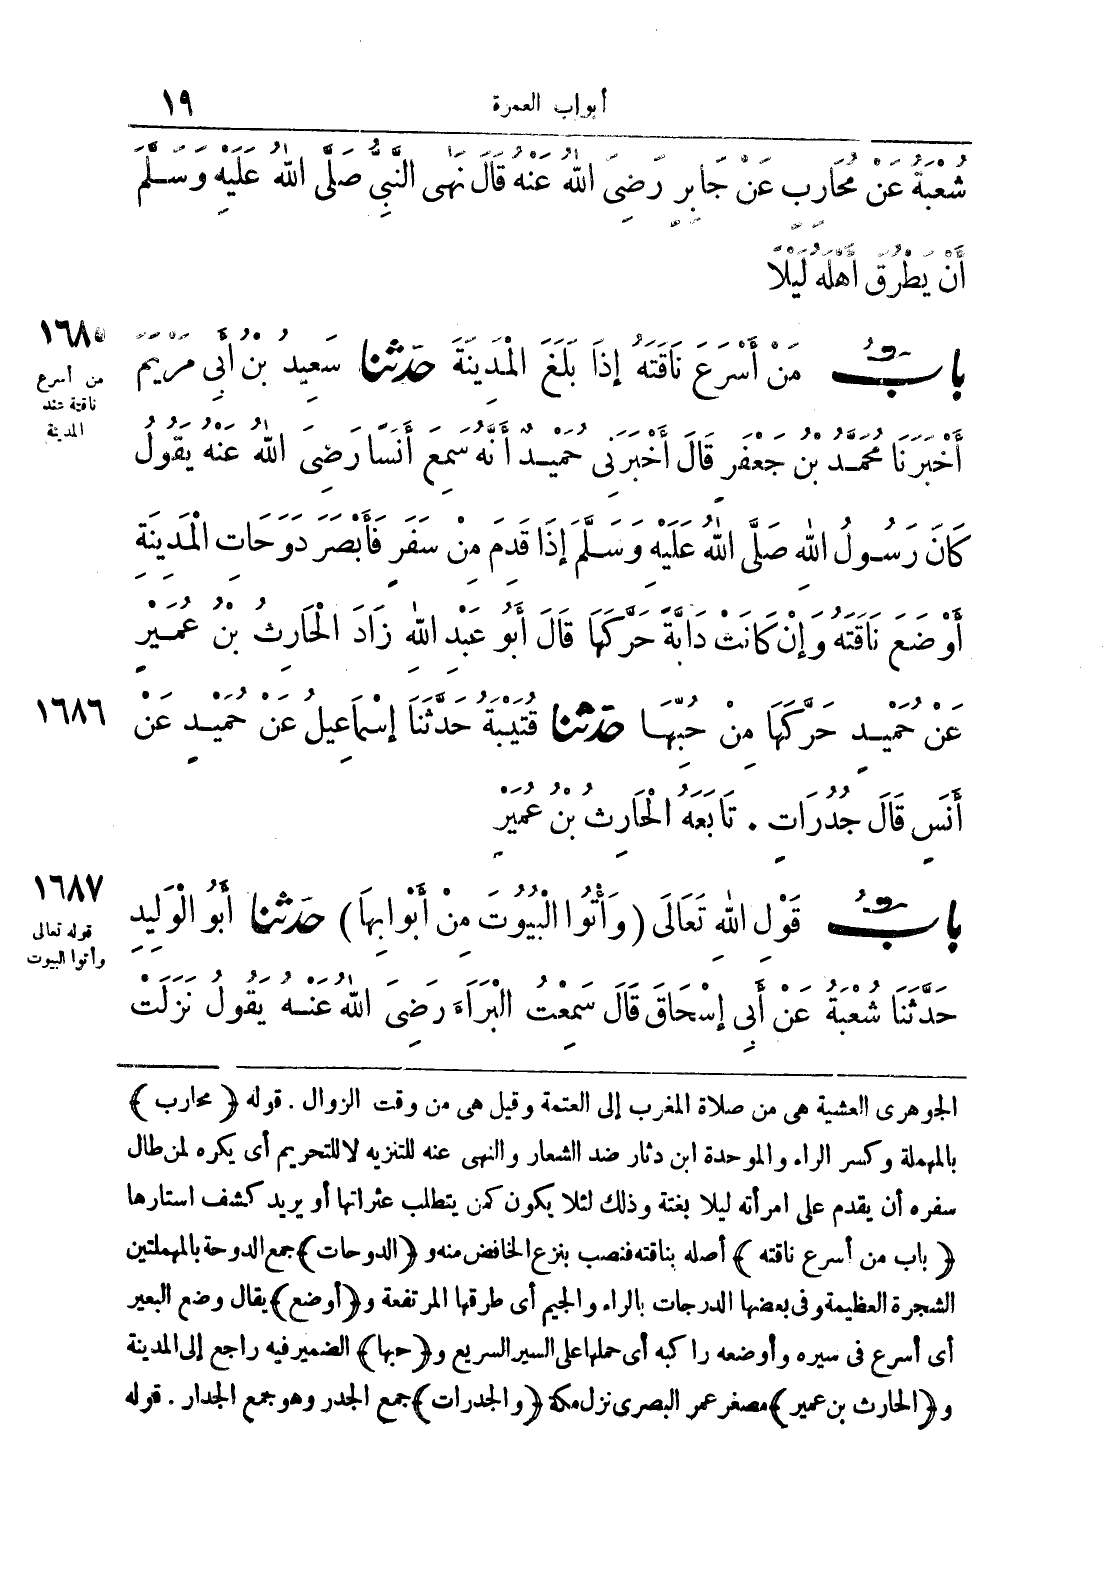 أبواب العمرة
١٩
شُعْبَةُ عَنْ مُحَارِبٍ عَنْ جَابِرٍ رَضِىَ اللهُ عَنْهُ قَالَ نَهَى النَّبِيُّ صَلَّى اللهُ عَلَيْهِ وَسَلَّمَ
أَنْ يَطْرُقَ أَهْلَهُ لَيْلًا
بابُ مَنْ أَسْرَعَ نَاقَتَهُ إِذَا بَلَغَ الْمَدِينَةَ حدثنا سَعِيدُ بْنُ أَبِي مَرْيَمَ
١٦٨٥
من أسرع
ناقته عند
المدينة
أَخْبَرَنَا مُحَمَّدُ بْنُ جَعْفَرٍ قَالَ أَخْبَرَنِي حُمَيْدٌ أَنَّهُ سَمِعَ أَنَسًا رَضِىَ اللهُ عَنْهُ يَقُولُ
كَانَ رَسُولُ اللهِ صَلَّى اللهُ عَلَيْهِ وَسَلَّمَ إِذَا قَدِمَ مِنْ سَفَرٍ فَأَبْصَرَ دَوَحَاتِ الْمَدِينَةِ
أَوْضَعَ نَاقَتَهُ وَإِنْ كَانَتْ دَابَّةً حَرَّكَهَا قَالَ أَبُو عَبْدِ اللهِ زَادَ الْحَارِثُ بْنُ عُمَيْرٍ
عَنْ حُمَيْدٍ حَرَّكَهَا مِنْ حُبِّهَا حدثنا قُتَيْبَةُ حَدَّثَنَا إِسْمَاعِيلُ عَنْ حُمَيْدٍ عَنْ
١٦٨٦
أَنَسٍ قَالَ جُدُرَاتِ . تَابَعَهُ الْحَارِثُ بْنُ عُمَيْرٍ
بابُ قَوْلِ اللهِ تَعَالَى (وَأْتُوا الْبُيُوتَ مِنْ أَبْوابِهَا) حدثنا أَبُو الْوَلِيدِ
١٦٨٧
قوله تعالى
وأتوا البيوت
حَدَّثَنَا شُعْبَةُ عَنْ أَبِي إِسْحَاقَ قَالَ سَمِعْتُ الْبَرَاءَ رَضِىَ اللهُ عَنْهُ يَقُولُ نَزَلَتْ
الجوهرى العشية هى من صلاة المغرب إلى العتمة وقيل هى من وقت الزوال . قوله (محارب)
بالمهملة وكسر الراء والموحدة ابن دثار ضد الشعار والنهى عنه للتنزيه لا للتحريم أى يكره لمن طال
سفره أن يقدم على امرأته ليلا بغتة وذلك لئلا يكون كمن يتطلب عثراتها أو يريد كشف استارها
(باب من أسرع ناقته) أصله بناقته فنصب بنزع الخافض منه و (الدوحات) جمع الدوحة بالمهملتين
الشجرة العظيمة وفى بعضها الدرجات بالراء والجيم أى طرقها المرتفعة و (أوضع) يقال وضع البعير
أى أسرع فى سيره وأوضعه راكبه أى حملها على السير السريع و (حبها) الضمير فيه راجع إلى المدينة
و (الحارث بن عمير) مصغر عمر البصرى نزل مكة (والجدرات) جمع الجدر وهو جمع الجدار . قوله